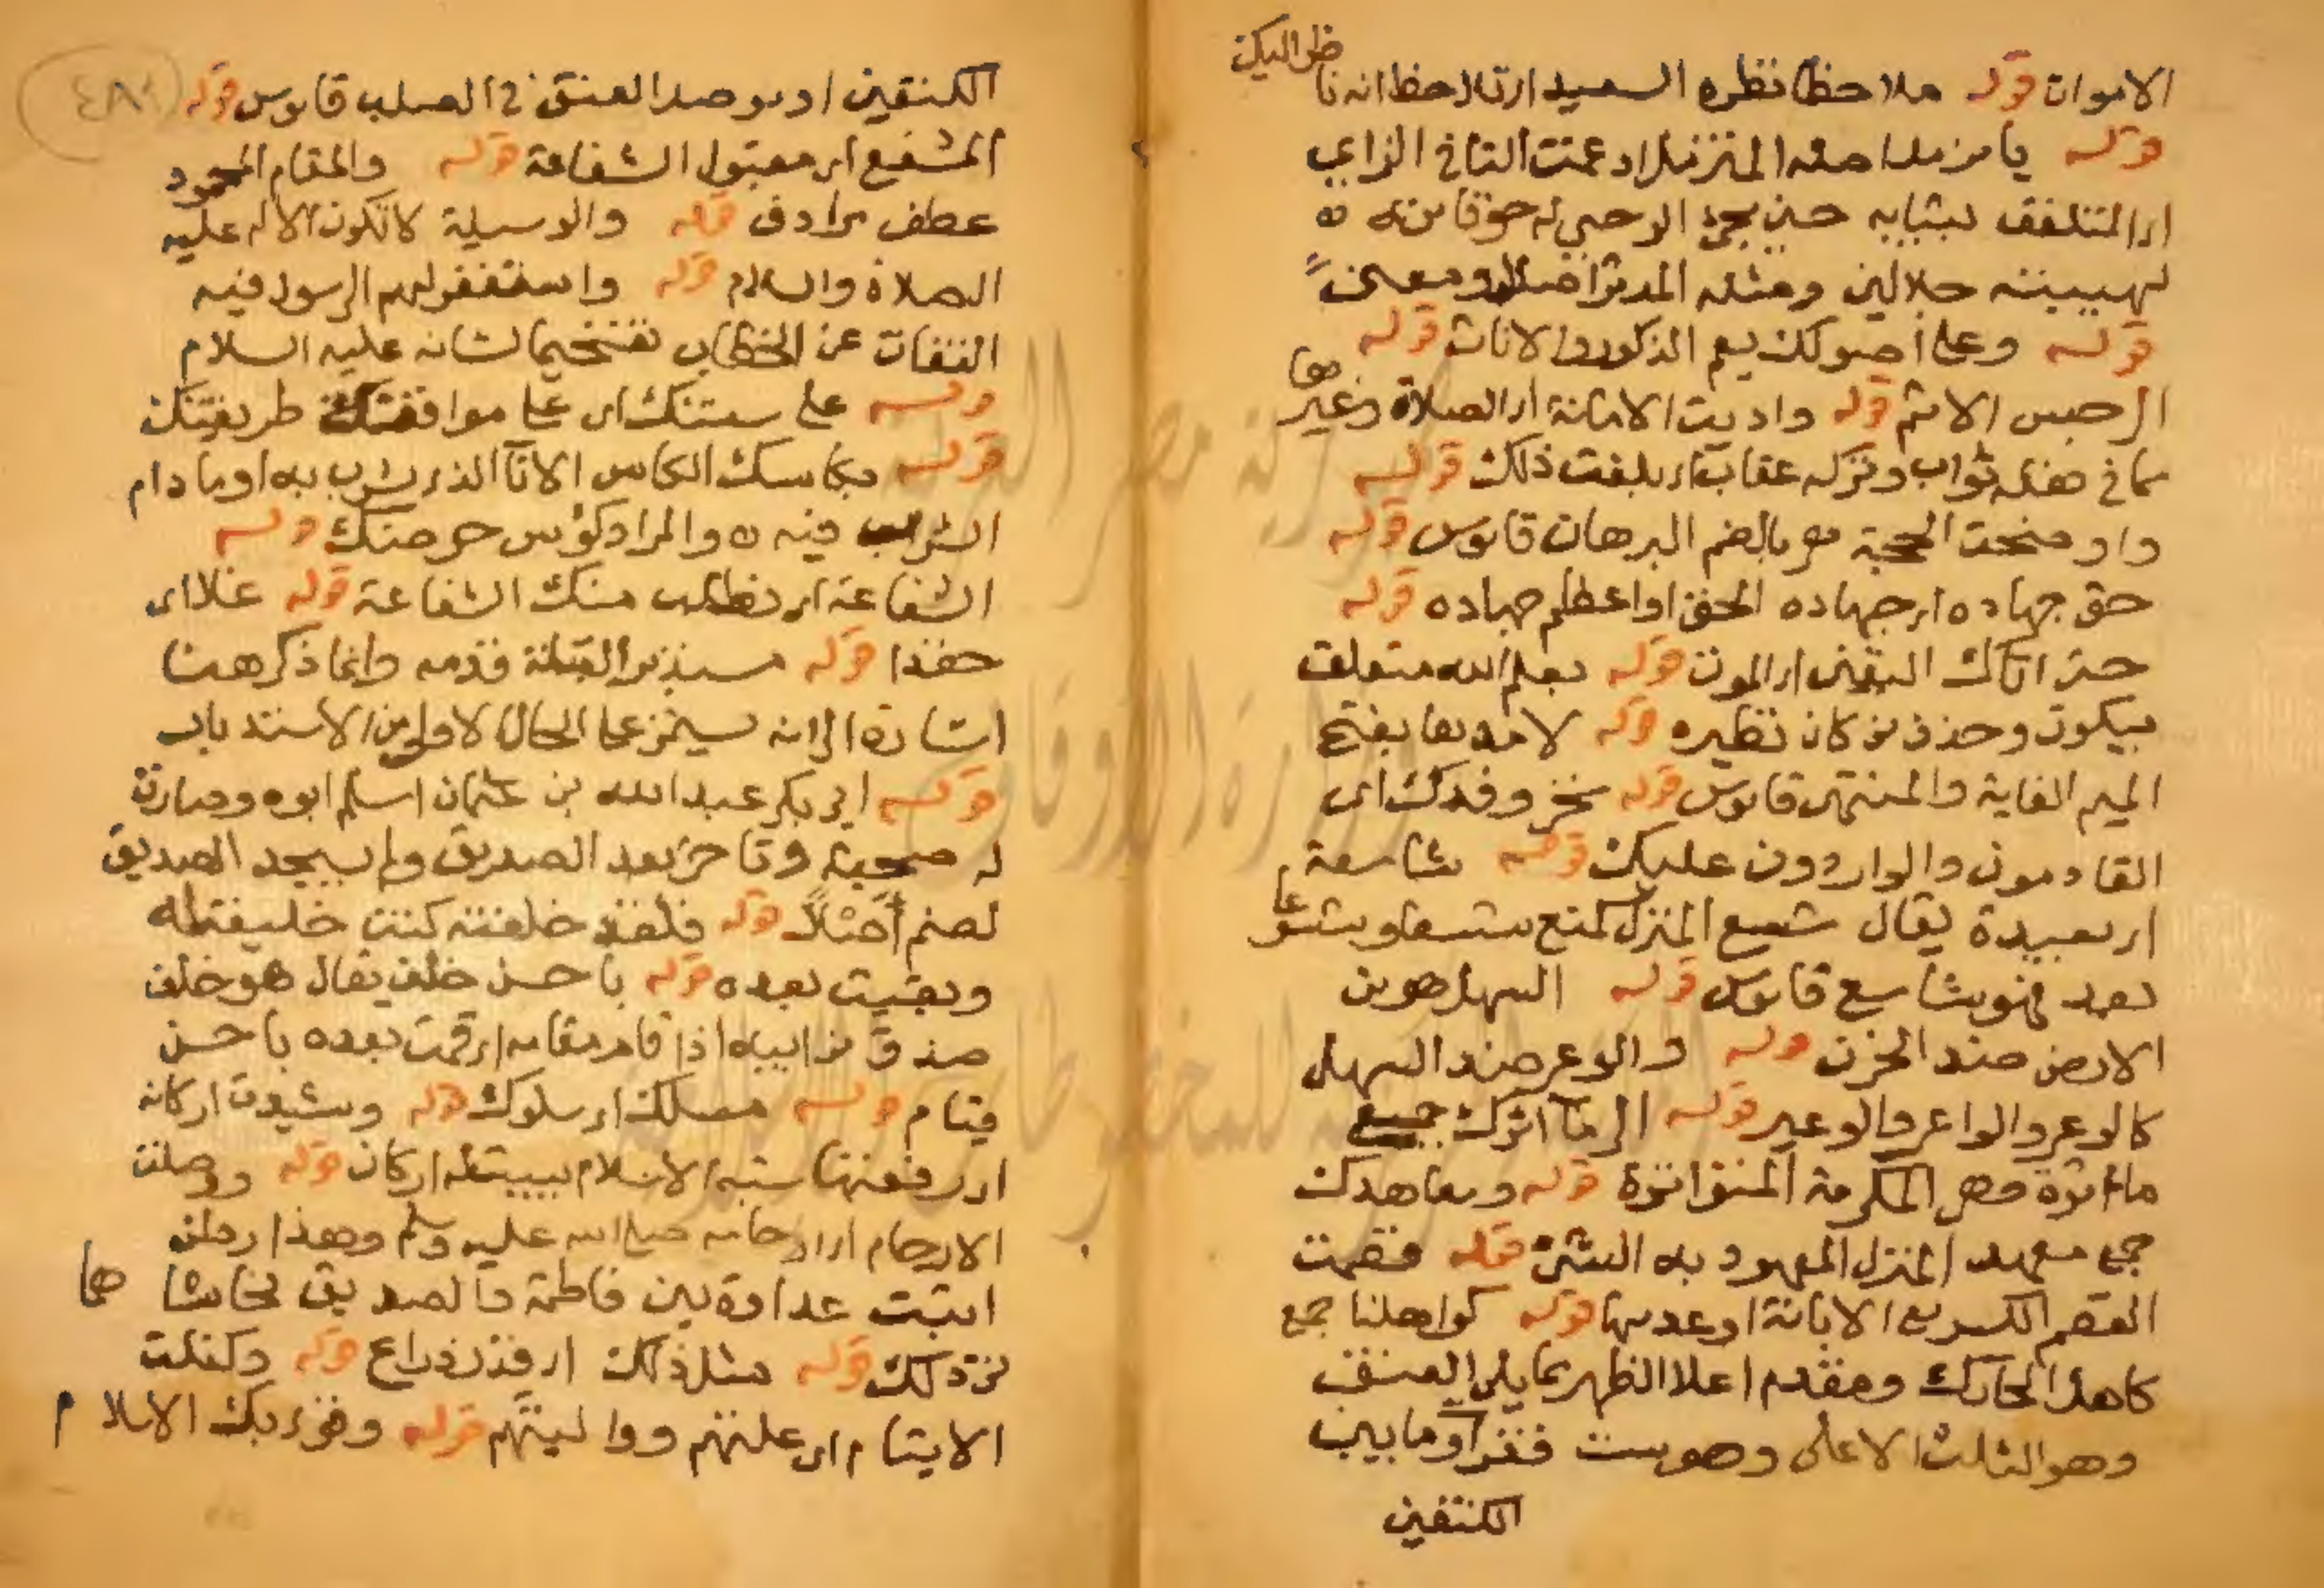 الاموات قوله ملاحظا نظره السعيد اي تلاحظ انه نا
ظر اليك
قوله يا مزمل اصله المتزمل ادغمت التا في الزاي
اي المتلفف بثيابه حين مجئ الوحي له خوفا منه ه
لهيبته جلالين ومثله المدثر اصلا ومعنى
قوله وعلى اصولك يعم الذكور والاناث قوله
الرجس الاثم قوله واديت الامانة اي الصلاة وغيرها
مما في فعله ثواب وتركه عقاب اي بلغت ذلك قوله
واوضحت الحجة هي بالضم البرهان قاموس قوله
حق جهاده اي جهاده الحق او اعظم جهاده قوله
حتى اتاك اليقين اي الموت قوله بعلم الله متعلق
بيكون وحذف من كان نظيره قوله لا مدىها بفتح
الميم الغاية والمنتهى قاموس قوله نحن وفدك اي
القادمون والواردون عليك قوله شاسعة
اي بعيدة يقال شسع المنزل كمنع شسعا وشسوعا
بعد فهو شاسع قاموس قوله السهل هو من
الارض ضد الحزن قوله والوعر ضد السهل
كالوعر والواعر والوعير قوله الى مآثرك جمع
ماثرة وهي المكرمة المتواترة قوله ومعاهدك
جمع معهد المنزل المعهود به الشئ قوله فقصمت
القصم الكسر مع الابانة او عدمها قوله كواهلنا جمع
كاهل الحارك ومقدم اعلا الظهر مما يلي العنق
وهو الثلث الاعلى وهو ست فقر او ما بين
الكتفين
٤٨٩
الكتفين او موصل العنق في الصلب قاموس قوله
المشفع اي مقبول الشفاعة قوله والمقام المحمود
عطف مرادف قوله والوسيلة لا تكون الا له عليه
الصلاة والسلام قوله واستغفر لهم الرسول فيه
التفات عن الخطاب تفخيما لشانه عليه السلام
قوله على سنتك اي على موافقتك طريقتك
قوله بكاسك الكاس الاناء الذي يشرب به او ما دام
الشراب فيه ه والمراد كؤس حوضك قوله
الشفاعة اي نطلب منك الشفاعة قوله غلا اي
حقدا قوله مستدبر القبلة قدمه وانما ذكر هنا
اشارة الى انه يستمر على الحال الاولى من الاستدبار
قوله ابي بكر عبد الله بن عثمان اسلم ابوه وصارت
له صحبة وتاخر بعد الصديق ولم يسجد الصديق
لصنم اصلا قوله فلقد خلفته كنت خليفة له
وبقيت بعده قوله باحسن خلف يقال هو خلف
صدق من ابيه اذا قام مقامه اي قمت بعده باحسن
قيام قوله مسلك اي سلوك قوله وشيدت اركانه
اي رفعتها شبه الاسلام ببيت له اركان قوله ووصلت
الارحام اي ارحامه صلى الله عليه وسلم وهذا رد لمن
اثبت عداوة بين فاطمة والصديق فحاشاهما
من ذلك قوله مثل ذلك اي قدر ذراع قوله وكفلت
الايتام اي علتهم وواليتهم قوله وقوي بك الاسلام